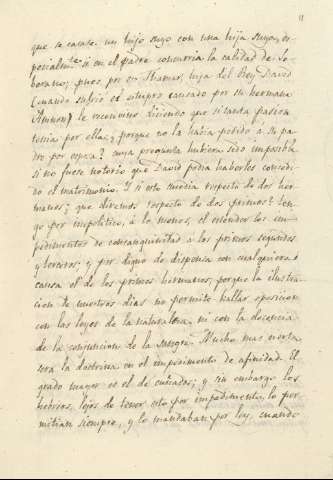 11
que se casase un hijo suyo con una hija suya, es-
pecialmte si en el padre concurria la calidad de So-
berano; pues por eso Thamar, hija del Rey David
(cuando sufrió el estupro causado por su hermano
Amnon) le reconvino diciendo que si tanta pasion
tenia por ella ¿porque no la habia pedido a su pa-
dre por esposa? cuya pregunta hubiera sido imposible
si no fuese notorio que David podia haberles concedi-
do el matrimonio. Y si esto media respecto de dos her-
manos; que diremos respecto de dos primos? Ten-
go por impolitico, á lo menos, el estender los im-
pedimentos de consanguinitas a los primos segundos
y terceros; y por digno de dispensa con cualquiera
causa el de los primos hermanos, porque la ilustra-
cion de nuestros dias no permite hallar oposicion
con las leyes de la naturaleza, ni con la decencia
de la conjuncion de la sangre. Mucho mas cierta
sera la doctrina en el impedimento de afinidad. El
grado mayor es el de cuñados; y sin embargo los
hebreos, lejos de tener esto por impedimento, lo per-
mitian siempre, y lo mandaban por ley, cuando